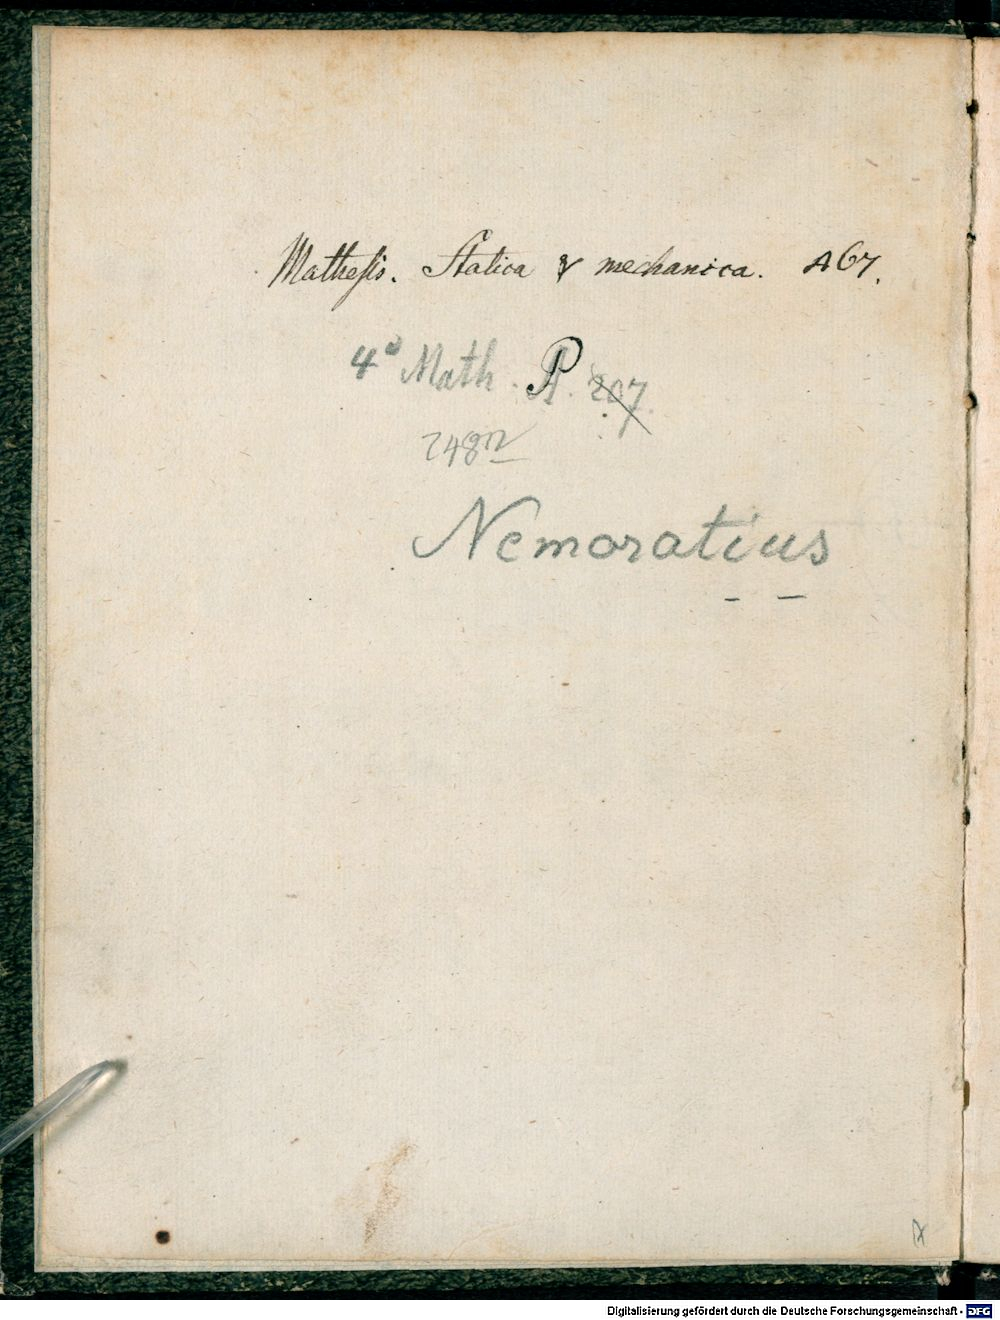 Mathesis. Statica & mechanica. A67.
4° Math. P. 207.
248n
Nemoratius
Digitalisierung gefördert durch die Deutsche Forschungsgemeinschaft - DFG